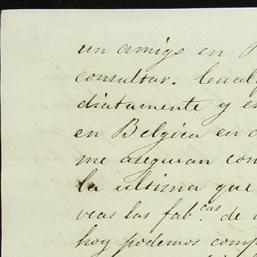 un amigo en
consultar.
diatamente y
en Belgica en
me aseguran con
la ultima que
veas las fab.cas de
hoy podemos comp